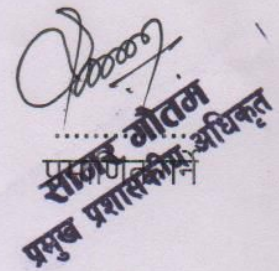 ....................
प्रमाणित गर्ने
सागर गौतम
प्रमुख प्रशासकीय अधिकृत